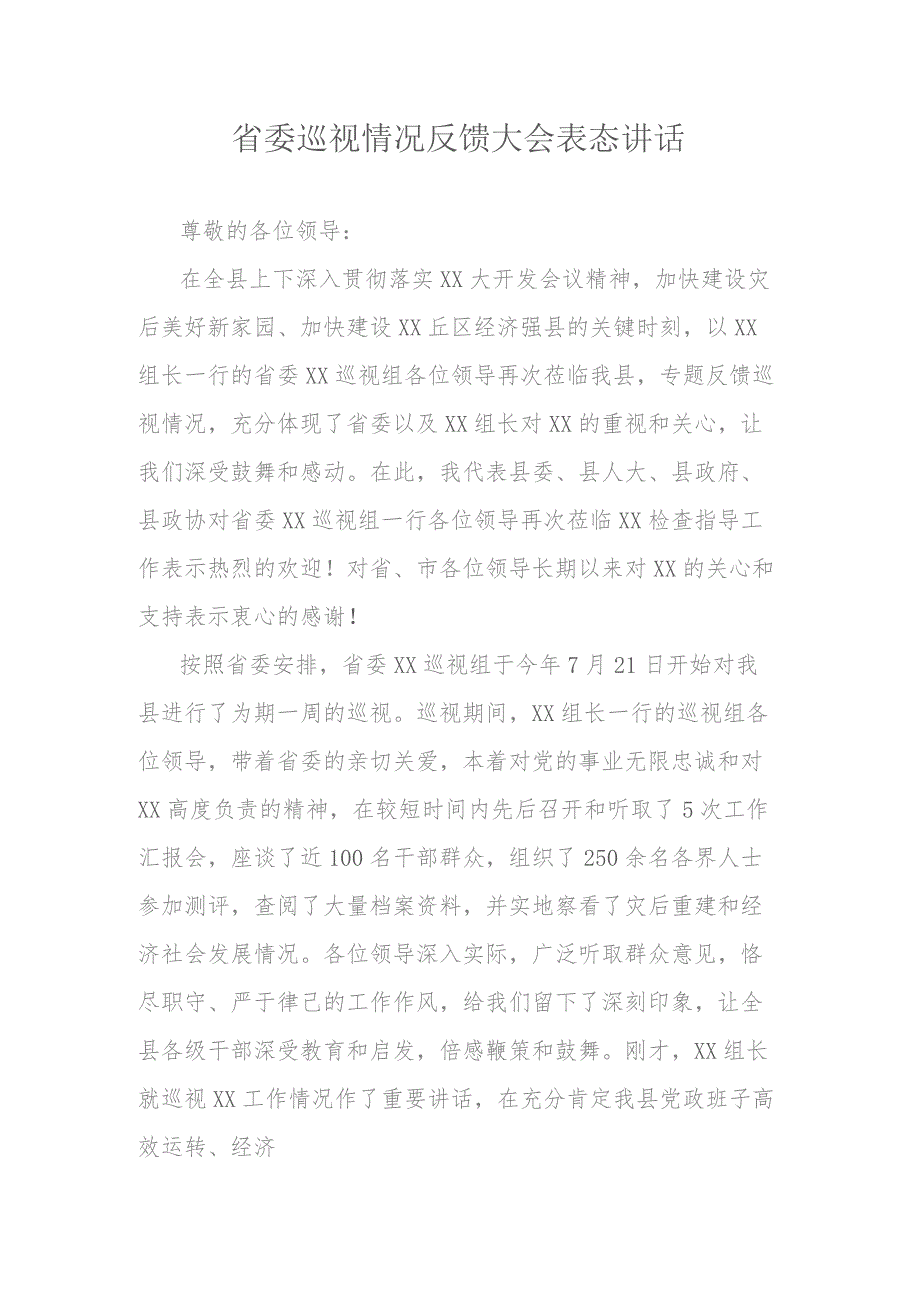 省委巡视情况反馈大会表态讲话
尊敬的各位领导：
在全县上下深入贯彻落实XX大开发会议精神，加快建设灾
后美好新家园、加快建设XX丘区经济强县的关键时刻，以XX
组长一行的省委XX巡视组各位领导再次莅临我县，专题反馈巡
视情况，充分体现了省委以及XX组长对XX的重视和关心，让
我们深受鼓舞和感动。在此，我代表县委、县人大、县政府、
县政协对省委XX巡视组一行各位领导再次莅临XX检查指导工
作表示热烈的欢迎！对省、市各位领导长期以来对XX的关心和
支持表示衷心的感谢！
按照省委安排，省委XX巡视组于今年7月21日开始对我
县进行了为期一周的巡视。巡视期间，XX组长一行的巡视组各
位领导，带着省委的亲切关爱，本着对党的事业无限忠诚和对
XX高度负责的精神，在较短时间内先后召开和听取了5次工作
汇报会，座谈了近100名干部群众，组织了250余名各界人士
参加测评，查阅了大量档案资料，并实地察看了灾后重建和经
济社会发展情况。各位领导深入实际，广泛听取群众意见，恪
尽职守、严于律己的工作作风，给我们留下了深刻印象，让全
县各级干部深受教育和启发，倍感鞭策和鼓舞。刚才，XX组长
就巡视XX工作情况作了重要讲话，在充分肯定我县党政班子高
效运转、经济